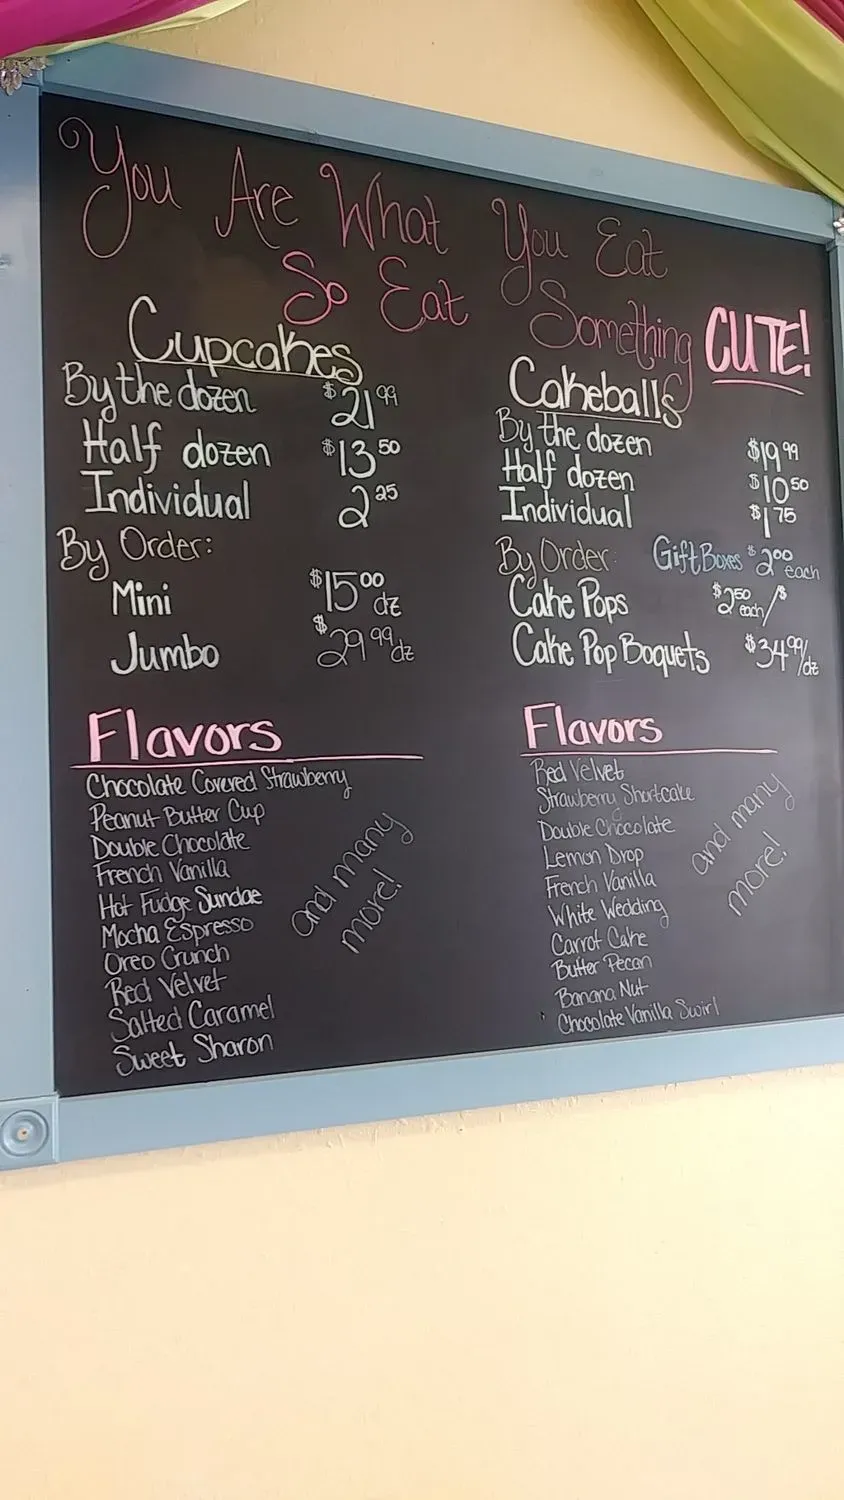 You Are What You Eat
So Eat Something CUTE!
Cupcakes
By the dozen $21.99
Half dozen $13.50
Individual 2.25
By Order:
Mini $15.00 dz
Jumbo $29.99 dz
Flavors
Chocolate Covered Strawberry
Peanut Butter Cup
Double Chocolate
French Vanilla
Hot Fudge Sundae
Mocha Espresso
Oreo Crunch
Red Velvet
Salted Caramel
Sweet Sharon
and many
more!
Cakeballs
By the dozen $19.99
Half dozen $10.50
Individual $1.75
By Order: Gift Boxes $2.00 each
Cake Pops $2.50 each/$
Cake Pop Boquets $34.99/dz
Flavors
Red Velvet
Strawberry Shortcake
Double Chocolate
Lemon Drop
French Vanilla
White Wedding
Carrot Cake
Butter Pecan
Banana Nut
Chocolate Vanilla Swirl
and many
more!